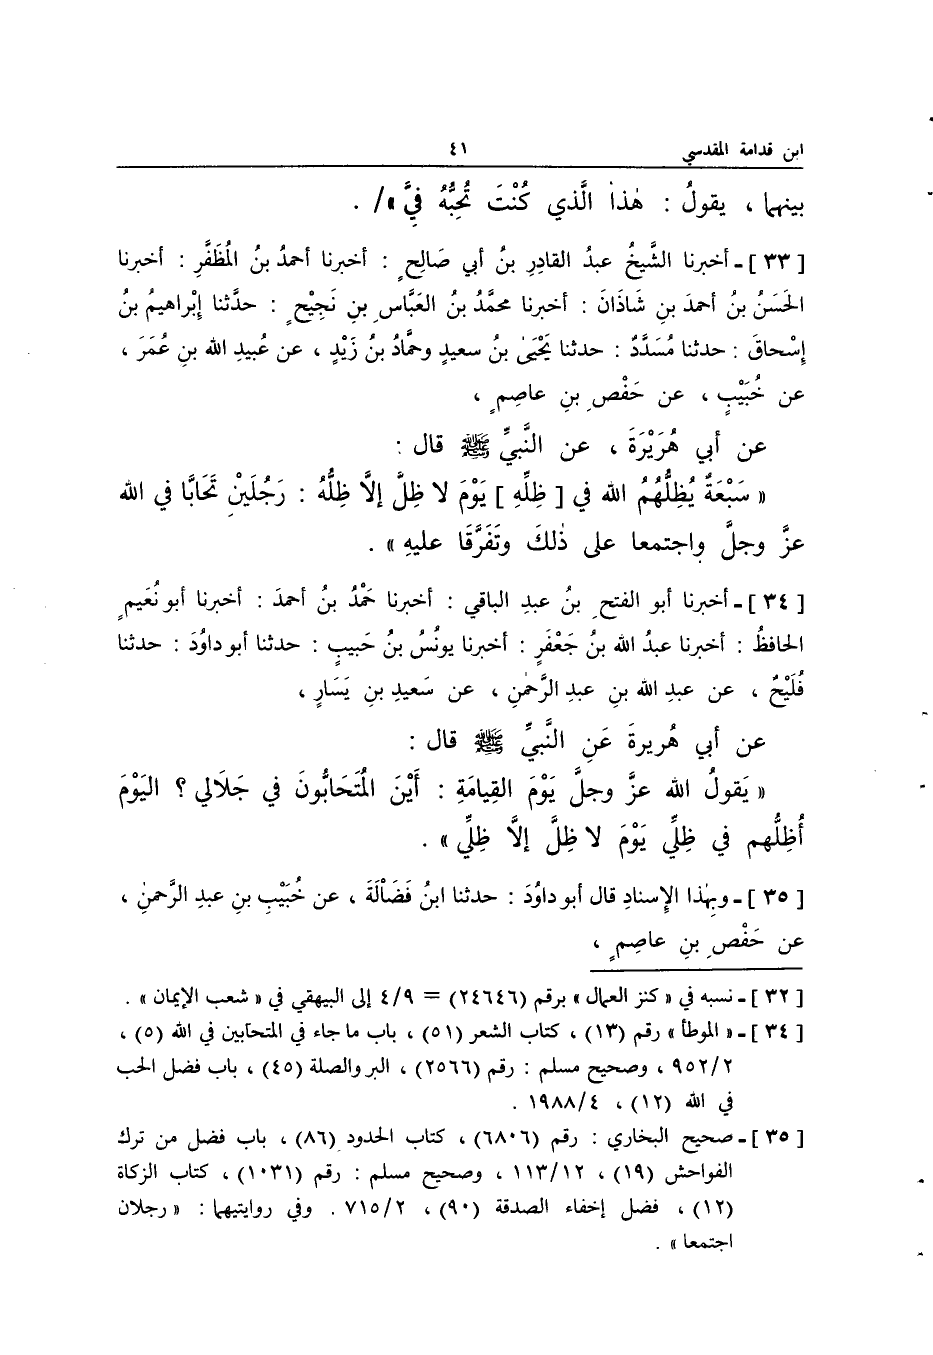 ابن قدامة المقدسي ٤١
بينهما ، يقولُ : هٰذا الَّذي كُنْتَ تُحِبُّهُ فيَّ »/ .
[ ٣٣ ] ـ أخبرنا الشَّيخُ عبدُ القادِرِ بنُ أبي صَالِحٍ : أخبرنا أحمدُ بنُ المُظَفَّرِ : أخبرنا
الحَسَنُ بنُ أحمدَ بنِ شَاذَانَ : أخبرنا محمَّدُ بنُ العَبَّاسِ بنِ نَجِيْحٍ : حدَّثنا إبْراهيمُ بنُ
إسْحاقَ : حدثنا مُسَدَّدٌ : حدثنا يَحْيَىٰ بنُ سعيدٍ وحمَّادُ بنُ زَيْدٍ ، عن عُبيدِ الله بنِ عُمَرَ ،
عن خُبَيْبٍ ، عن حَفْصِ بنِ عاصِمٍ ،
عن أبي هُرَيْرَةَ ، عن النَّبيِّ ﷺ قال :
« سَبْعَةٌ يُظِلُّهُمُ الله في [ ظِلِّهِ ] يَوْمَ لا ظِلَّ إلاَّ ظِلُّهُ : رَجُلَيْنِ تَحَابَّا في الله
عزَّ وجلَّ واجتمعا على ذٰلكَ وتَفَرَّقَا عليهِ » .
[ ٣٤ ] ـ أخبرنا أبو الفتحِ بنُ عبدِ الباقي : أخبرنا حَمْدُ بنُ أحمدَ : أخبرنا أبو نُعَيمٍ
الحافظُ : أخبرنا عبدُ الله بنُ جَعْفَرٍ : أخبرنا يونُسُ بنُ حَبيبٍ : حدثنا أبو داوُدَ : حدثنا
فُلَيْحٌ ، عن عبدِ الله بنِ عبدِ الرَّحمٰنِ ، عن سَعيدِ بنِ يَسَارٍ ،
عن أبي هُريرةَ عَنِ النَّبيِّ ﷺ قال :
« يَقولُ الله عزَّ وجلَّ يَوْمَ القِيامَةِ : أَيْنَ المُتَحَابُّونَ في جَلَالي ؟ اليَوْمَ
أُظِلُّهم في ظِلِّي يَوْمَ لا ظِلَّ إلاَّ ظِلِّي » .
[ ٣٥ ] ـ وبهٰذا الإسنادِ قال أبو داوُدَ : حدثنا ابنُ فَضَالَةَ ، عن خُبَيْبِ بنِ عبدِ الرَّحمنِ ،
عن حَفْصِ بنِ عاصِمٍ ،
[ ٣٢ ] ـ نسبه في « كنز العمال » برقم (٢٤٦٤٦) = ٤/٩ إلى البيهقي في « شعب الإيمان » .
[ ٣٤ ] ـ « الموطأ » رقم (١٣) ، كتاب الشعر (٥١) ، باب ما جاء في المتحابين في الله (٥) ،
٩٥٢/٢ ، وصحيح مسلم : رقم (٢٥٦٦) ، البر والصلة (٤٥) ، باب فضل الحب
في الله (١٢) ، ١٩٨٨/٤ .
[ ٣٥ ] ـ صحيح البخاري : رقم (٦٨٠٦) ، كتاب الحدود (٨٦) ، باب فضل من ترك
الفواحش (١٩) ، ١١٣/١٢ ، وصحيح مسلم : رقم (١٠٣١) ، كتاب الزكاة
(١٢) ، فضل إخفاء الصدقة (٩٠) ، ٧١٥/٢ . وفي روايتيهما : « رجلان
اجتمعا » .